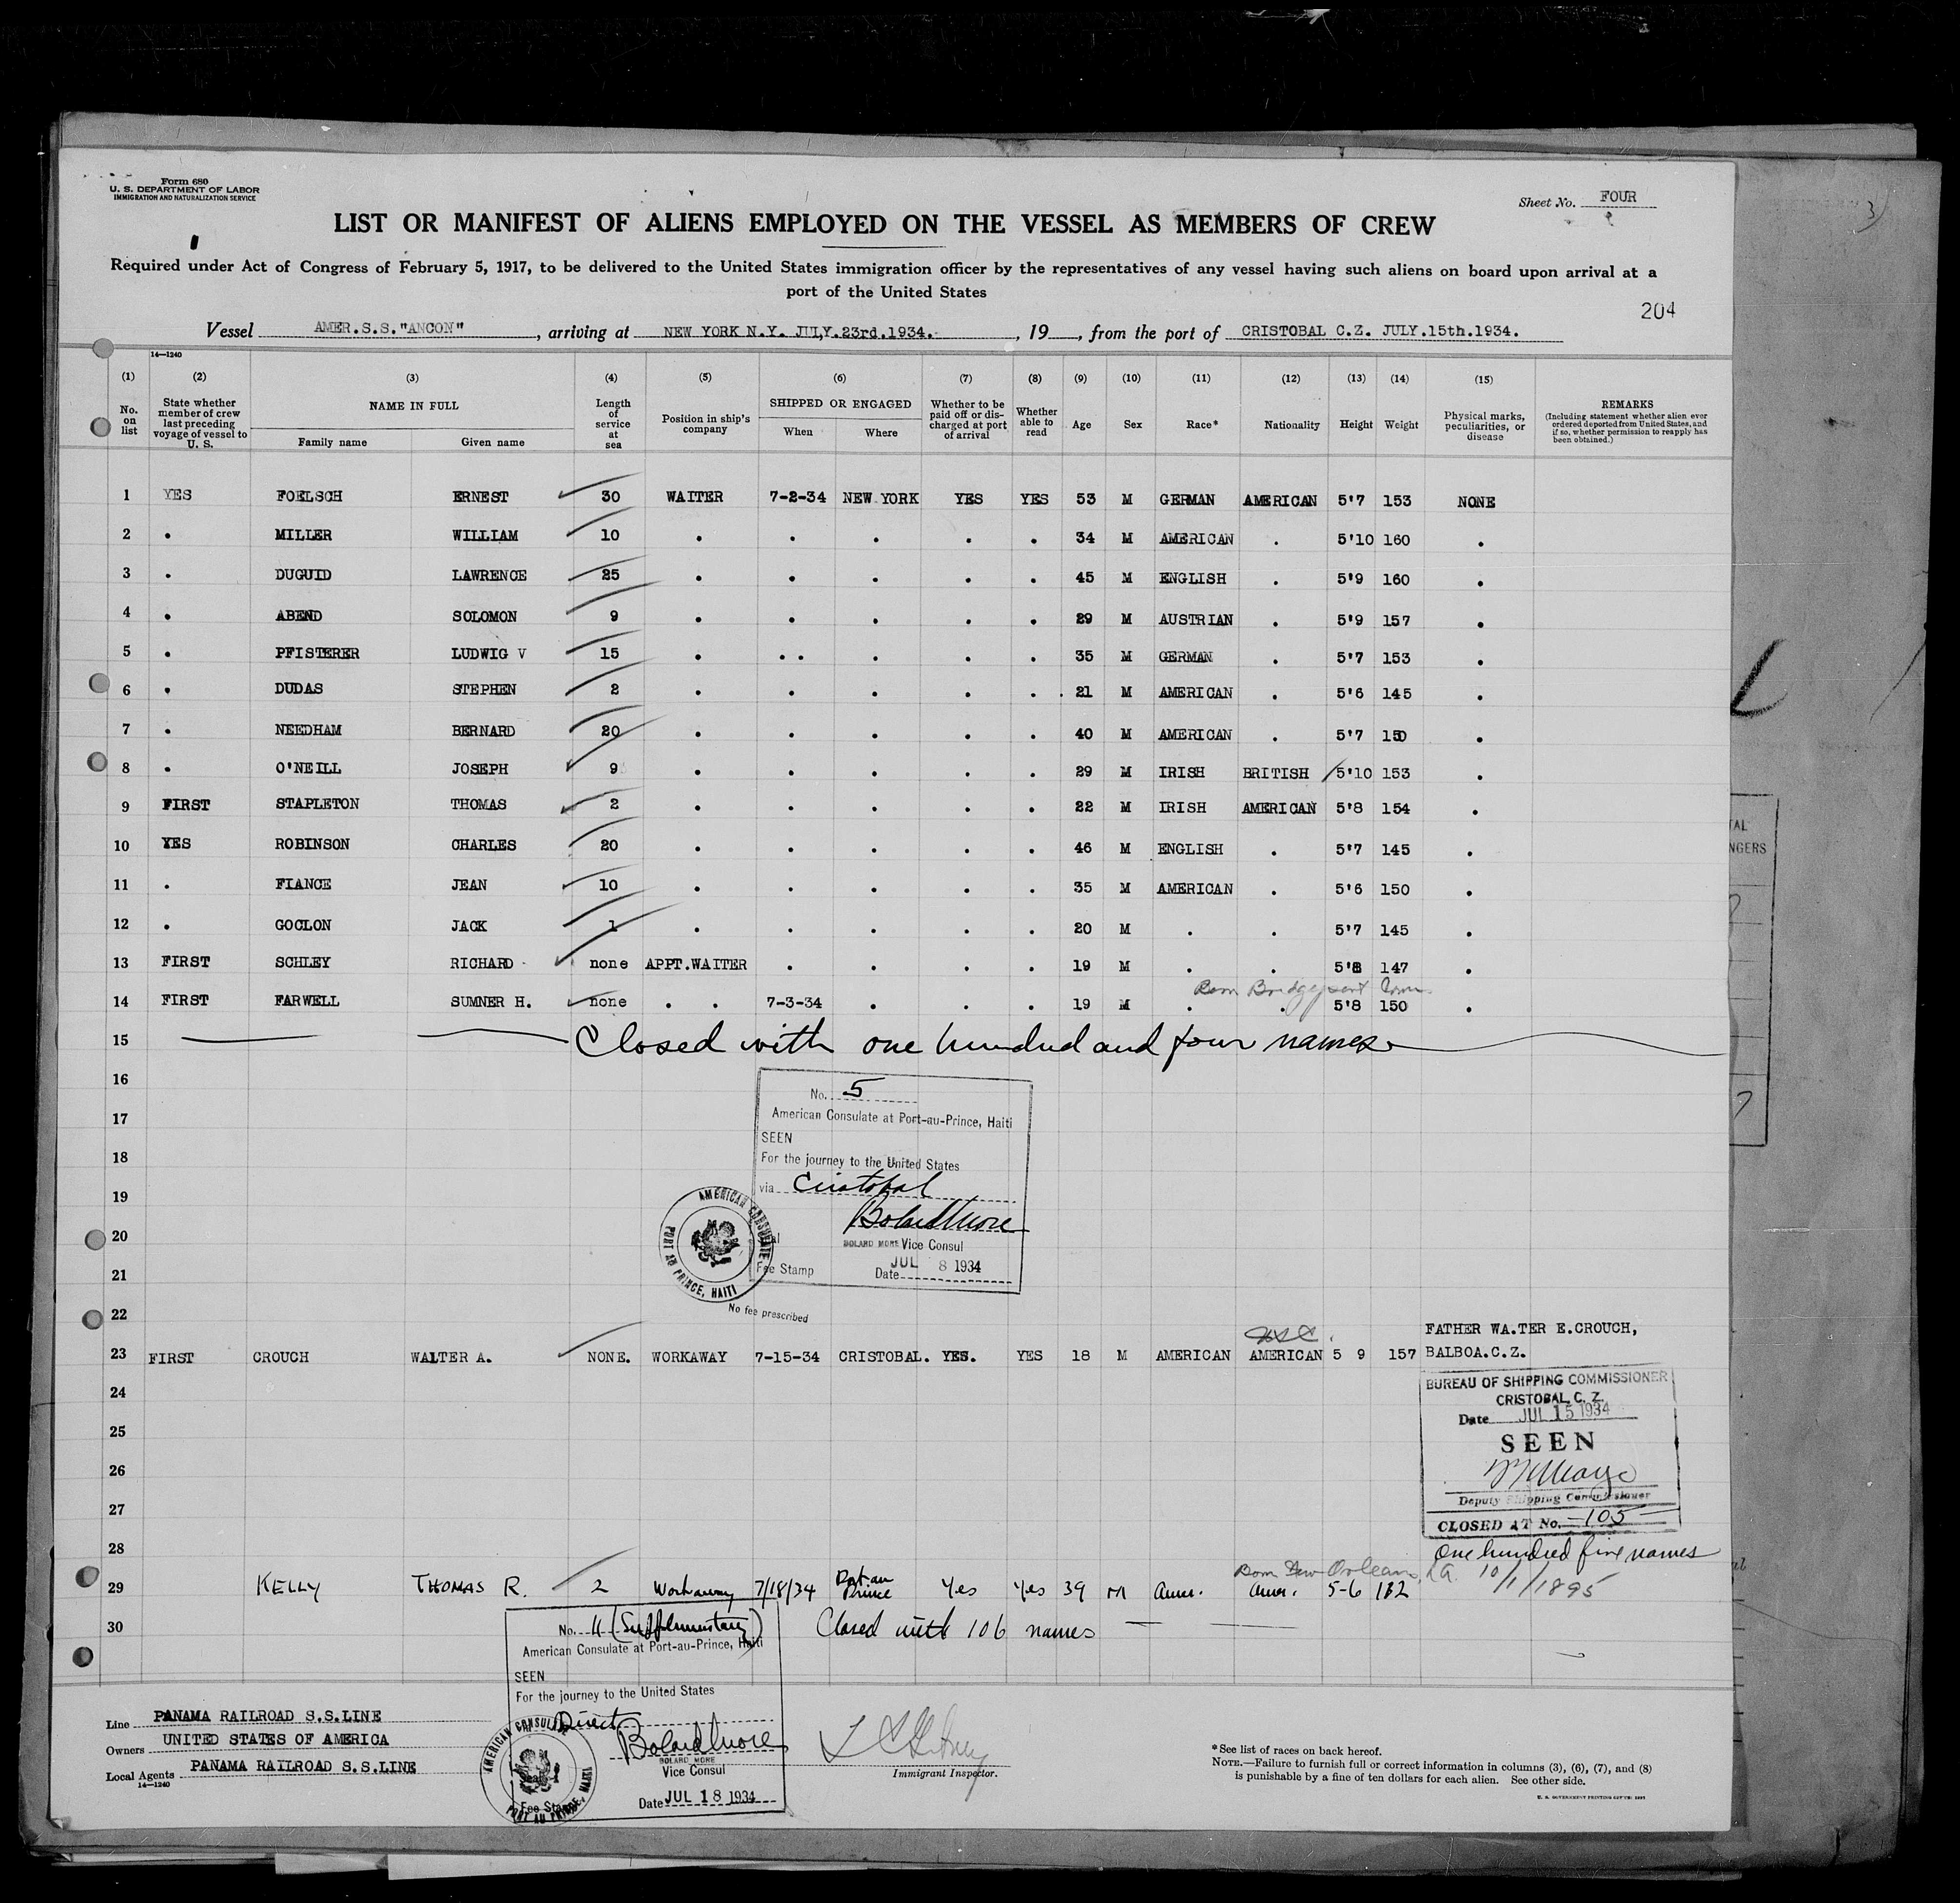 Form 680
U. S. DEPARTMENT OF LABOR
IMMIGRATION AND NATURALIZATION SERVICE
Sheet No. FOUR
LIST OR MANIFEST OF ALIENS EMPLOYED ON THE VESSEL AS MEMBERS OF CREW
Required under Act of Congress of February 5, 1917, to be delivered to the United States immigration officer by the representatives of any vessel having such aliens on board upon arrival at a
port of the United States
204
Vessel AMER.S.S."ANCON", arriving at NEW YORK N.Y. JULY.23rd.1934., 19 , from the port of CRISTOBAL C.Z. JULY.15th.1934.
14—1240
(1) (2) (3) (4) (5) (6) (7) (8) (9) (10) (11) (12) (13) (14) (15)
No. on list
State whether member of crew last preceding voyage of vessel to U. S.
NAME IN FULL
Family name
Given name
Length of service at sea
Position in ship's company
SHIPPED OR ENGAGED
When
Where
Whether to be paid off or discharged at port of arrival
Whether able to read
Age
Sex
Race*
Nationality
Height
Weight
Physical marks, peculiarities, or disease
REMARKS
(Including statement whether alien ever ordered deported from United States, and if so, whether permission to reapply has been obtained.)
1 YES FOELSCH ERNEST 30 WAITER 7-2-34 NEW YORK YES YES 53 M GERMAN AMERICAN 5'7 153 NONE
2 . MILLER WILLIAM 10 . . . . . 34 M AMERICAN . 5'10 160 .
3 . DUGUID LAWRENCE 25 . . . . . 45 M ENGLISH . 5'9 160 .
4 . ABEND SOLOMON 9 . . . . . 29 M AUSTRIAN . 5'9 157 .
5 . PFISTERER LUDWIG V 15 . . . . . . 35 M GERMAN . 5'7 153 .
6 . DUDAS STEPHEN 2 . . . . . 21 M AMERICAN . 5'6 145 .
7 . NEEDHAM BERNARD 20 . . . . . 40 M AMERICAN . 5'7 150 .
8 . O'NEILL JOSEPH 9 . . . . . 29 M IRISH BRITISH 5'10 153 .
9 FIRST STAPLETON THOMAS 2 . . . . . 22 M IRISH AMERICAN 5'8 154 .
10 YES ROBINSON CHARLES 20 . . . . . 46 M ENGLISH . 5'7 145 .
11 . FIANCE JEAN 10 . . . . . 35 M AMERICAN . 5'6 150 .
12 . GOCLON JACK 1 . . . . . 20 M . . 5'7 145 .
13 FIRST SCHLEY RICHARD none APPT.WAITER . . . . 19 M . . 5'8 147 .
Born Bridgeport Conn.
14 FIRST FARWELL SUMNER H. none . . 7-3-34 . . . 19 M . . 5'8 150 .
15 Closed with one hundred and four names
16
No. 5
17 American Consulate at Port-au-Prince, Haiti
SEEN
18 For the journey to the United States
19 via Cristobal
AMERICAN CONSULATE
PORT AU PRINCE, HAITI
Bolard More
20 BOLARD MORE Vice Consul
21 Fee Stamp Date JUL 8 1934
22 No fee prescribed
FATHER WA.TER E.CROUCH,
23 FIRST CROUCH WALTER A. NONE. WORKAWAY 7-15-34 CRISTOBAL. YES. YES 18 M AMERICAN AMERICAN 5 9 157 BALBOA.C.Z.
BUREAU OF SHIPPING COMMISSIONER
24 CRISTOBAL, C. Z.
Date JUL 15 1934
25 SEEN
26
Deputy Shipping Commissioner
27 CLOSED AT No. -105-
28 One hundred five names
Born New Orleans, La. 10/1/1895
29 KELLY THOMAS R. 2 Workaway 7/18/34 Port au Prince Yes Yes 39 M Amer. Amer. 5-6 132
30 Closed with 106 names
No. 11 (Supplementary)
American Consulate at Port-au-Prince, Haiti
SEEN
For the journey to the United States
Direct
Bolard More
BOLARD MORE
Vice Consul
Fee Stamp
Date JUL 18 1934
AMERICAN CONSULATE
PORT AU PRINCE, HAITI
Line PANAMA RAILROAD S.S.LINE
Owners UNITED STATES OF AMERICA
Local Agents PANAMA RAILROAD S.S.LINE
14—1240
Immigrant Inspector.
*See list of races on back hereof.
NOTE.—Failure to furnish full or correct information in columns (3), (6), (7), and (8)
is punishable by a fine of ten dollars for each alien. See other side.